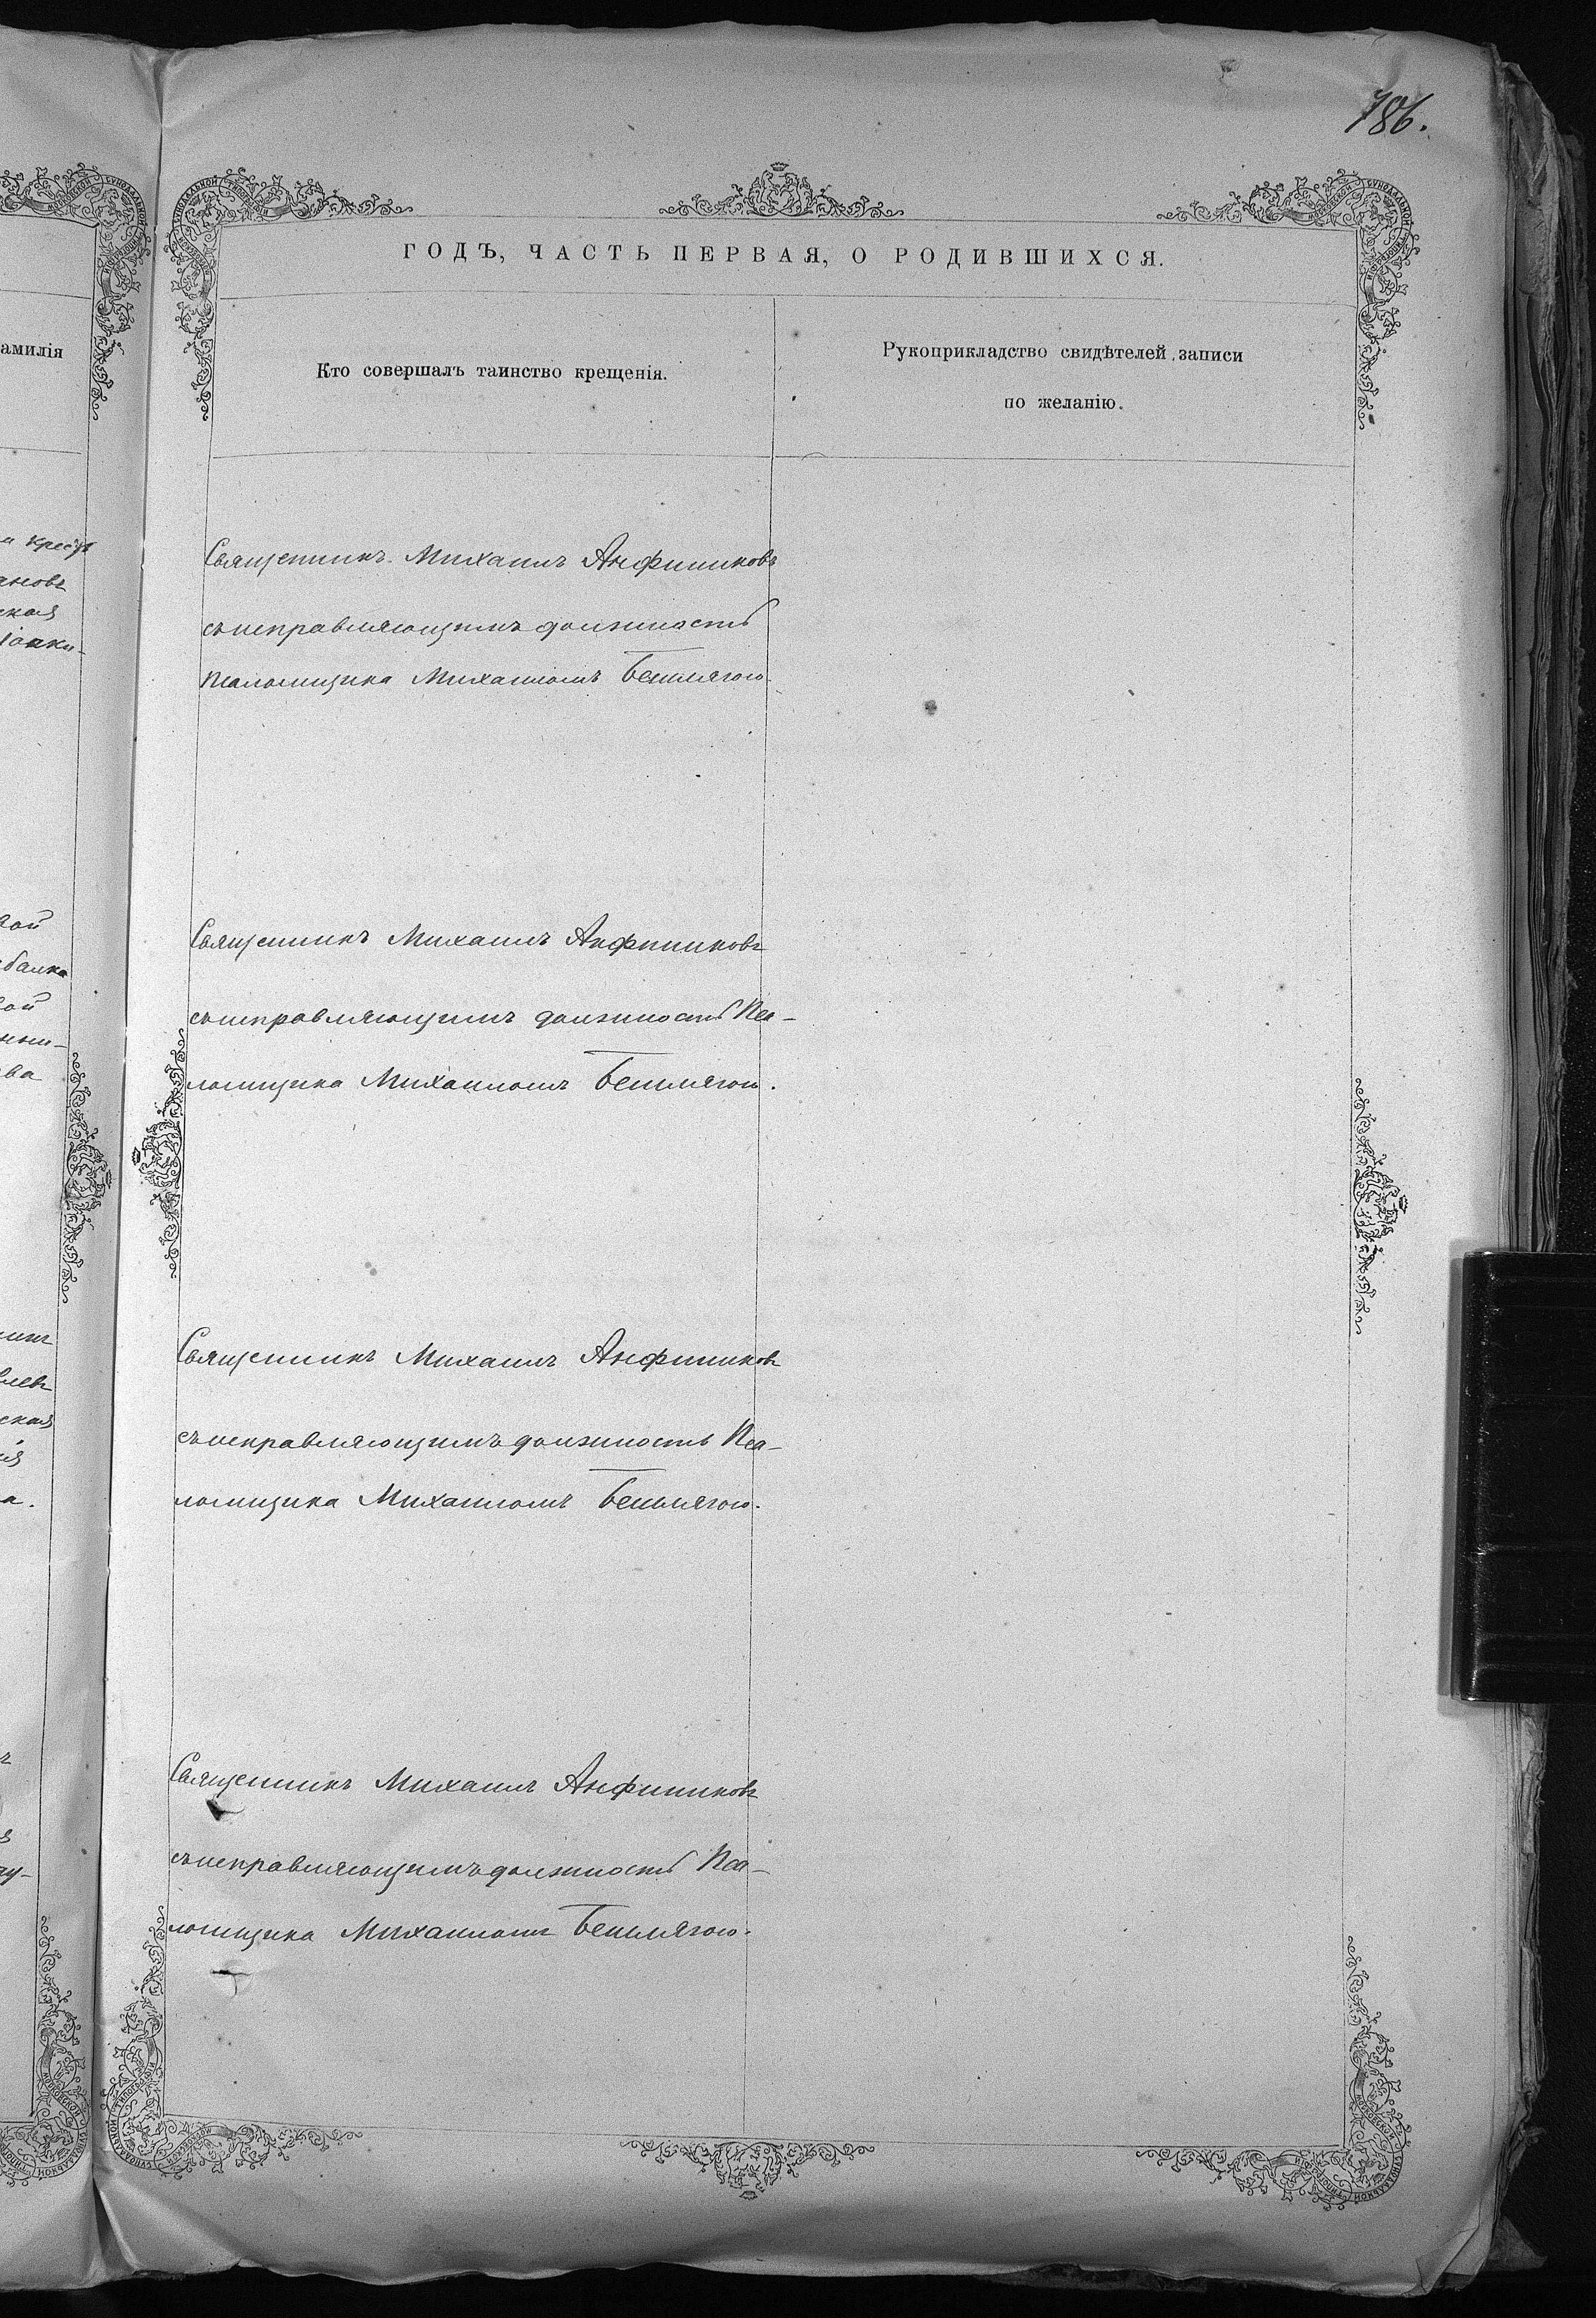 786.
ГОДЪ, ЧАСТЬ ПЕРВАЯ, О РОДИВШИХСЯ.
амилія
Кто совершалъ таинство крещенія.
Рукоприкладство свидѣтелей записи
по желанію.
Священникъ Михаилъ Анфиниковъ
съисправляющимъ должность
псаломщика Михаиломъ
Священникъ Михаилъ Анфиниковъ
съисправляющимъ должность Пса-
ломщика Михаиломъ
Священникъ Михаилъ Анфиниковъ
съисправляющимъ должность Пса-
ломщика Михаиломъ
Священникъ Михаилъ Анфиниковъ
съисправляющимъ должность Пса-
ломщика Михаиломъ